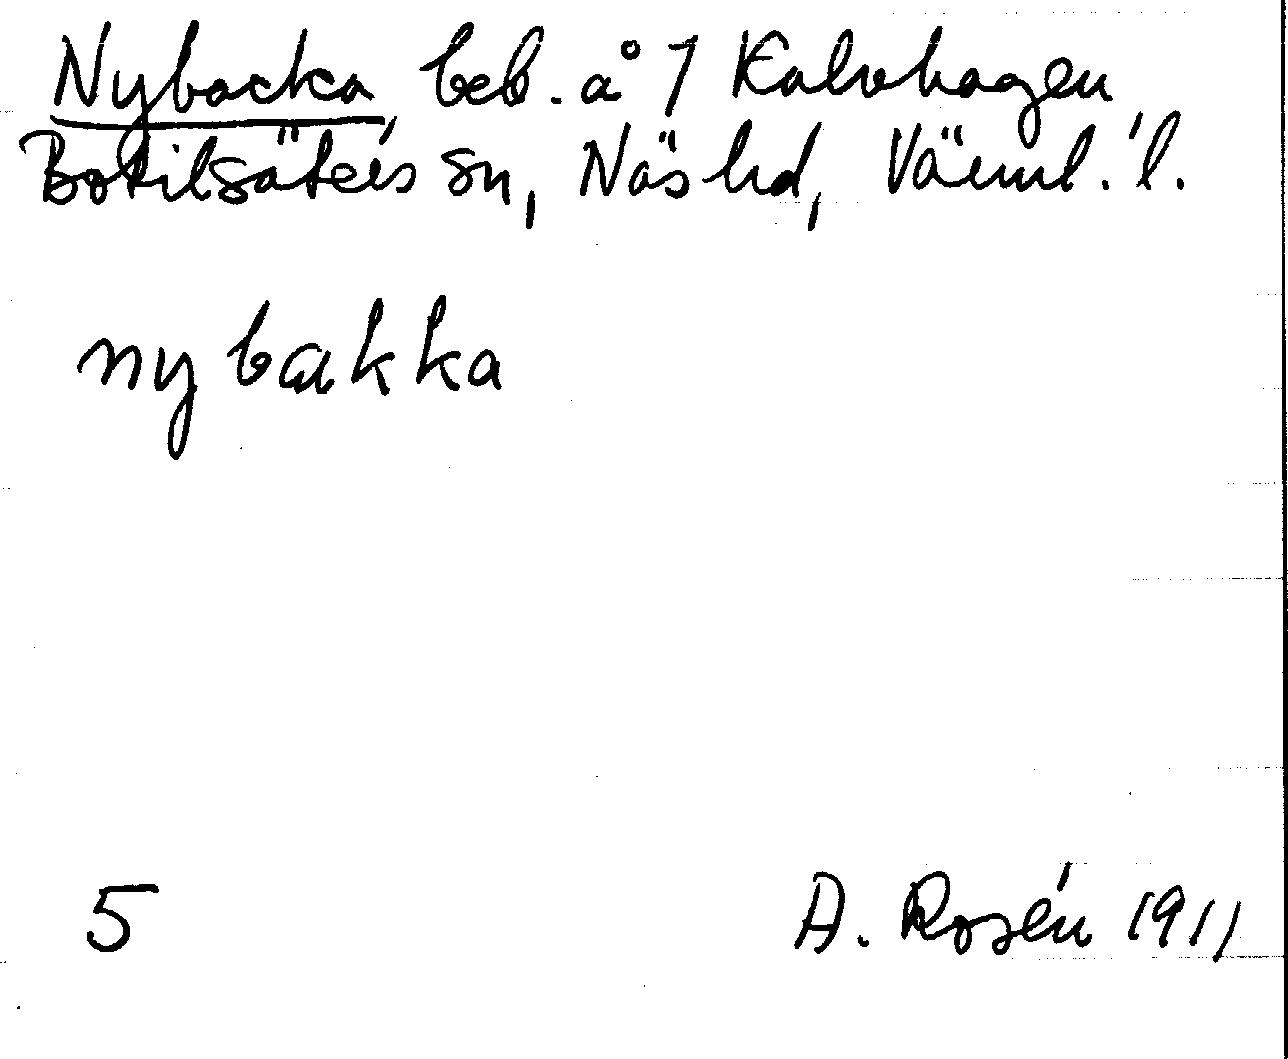 Nybacka, beb. å 1 Kalvhagen,
Botilsäters sn, Näs hd, Värml. l.
nybakka
5
A. Rosén 1911